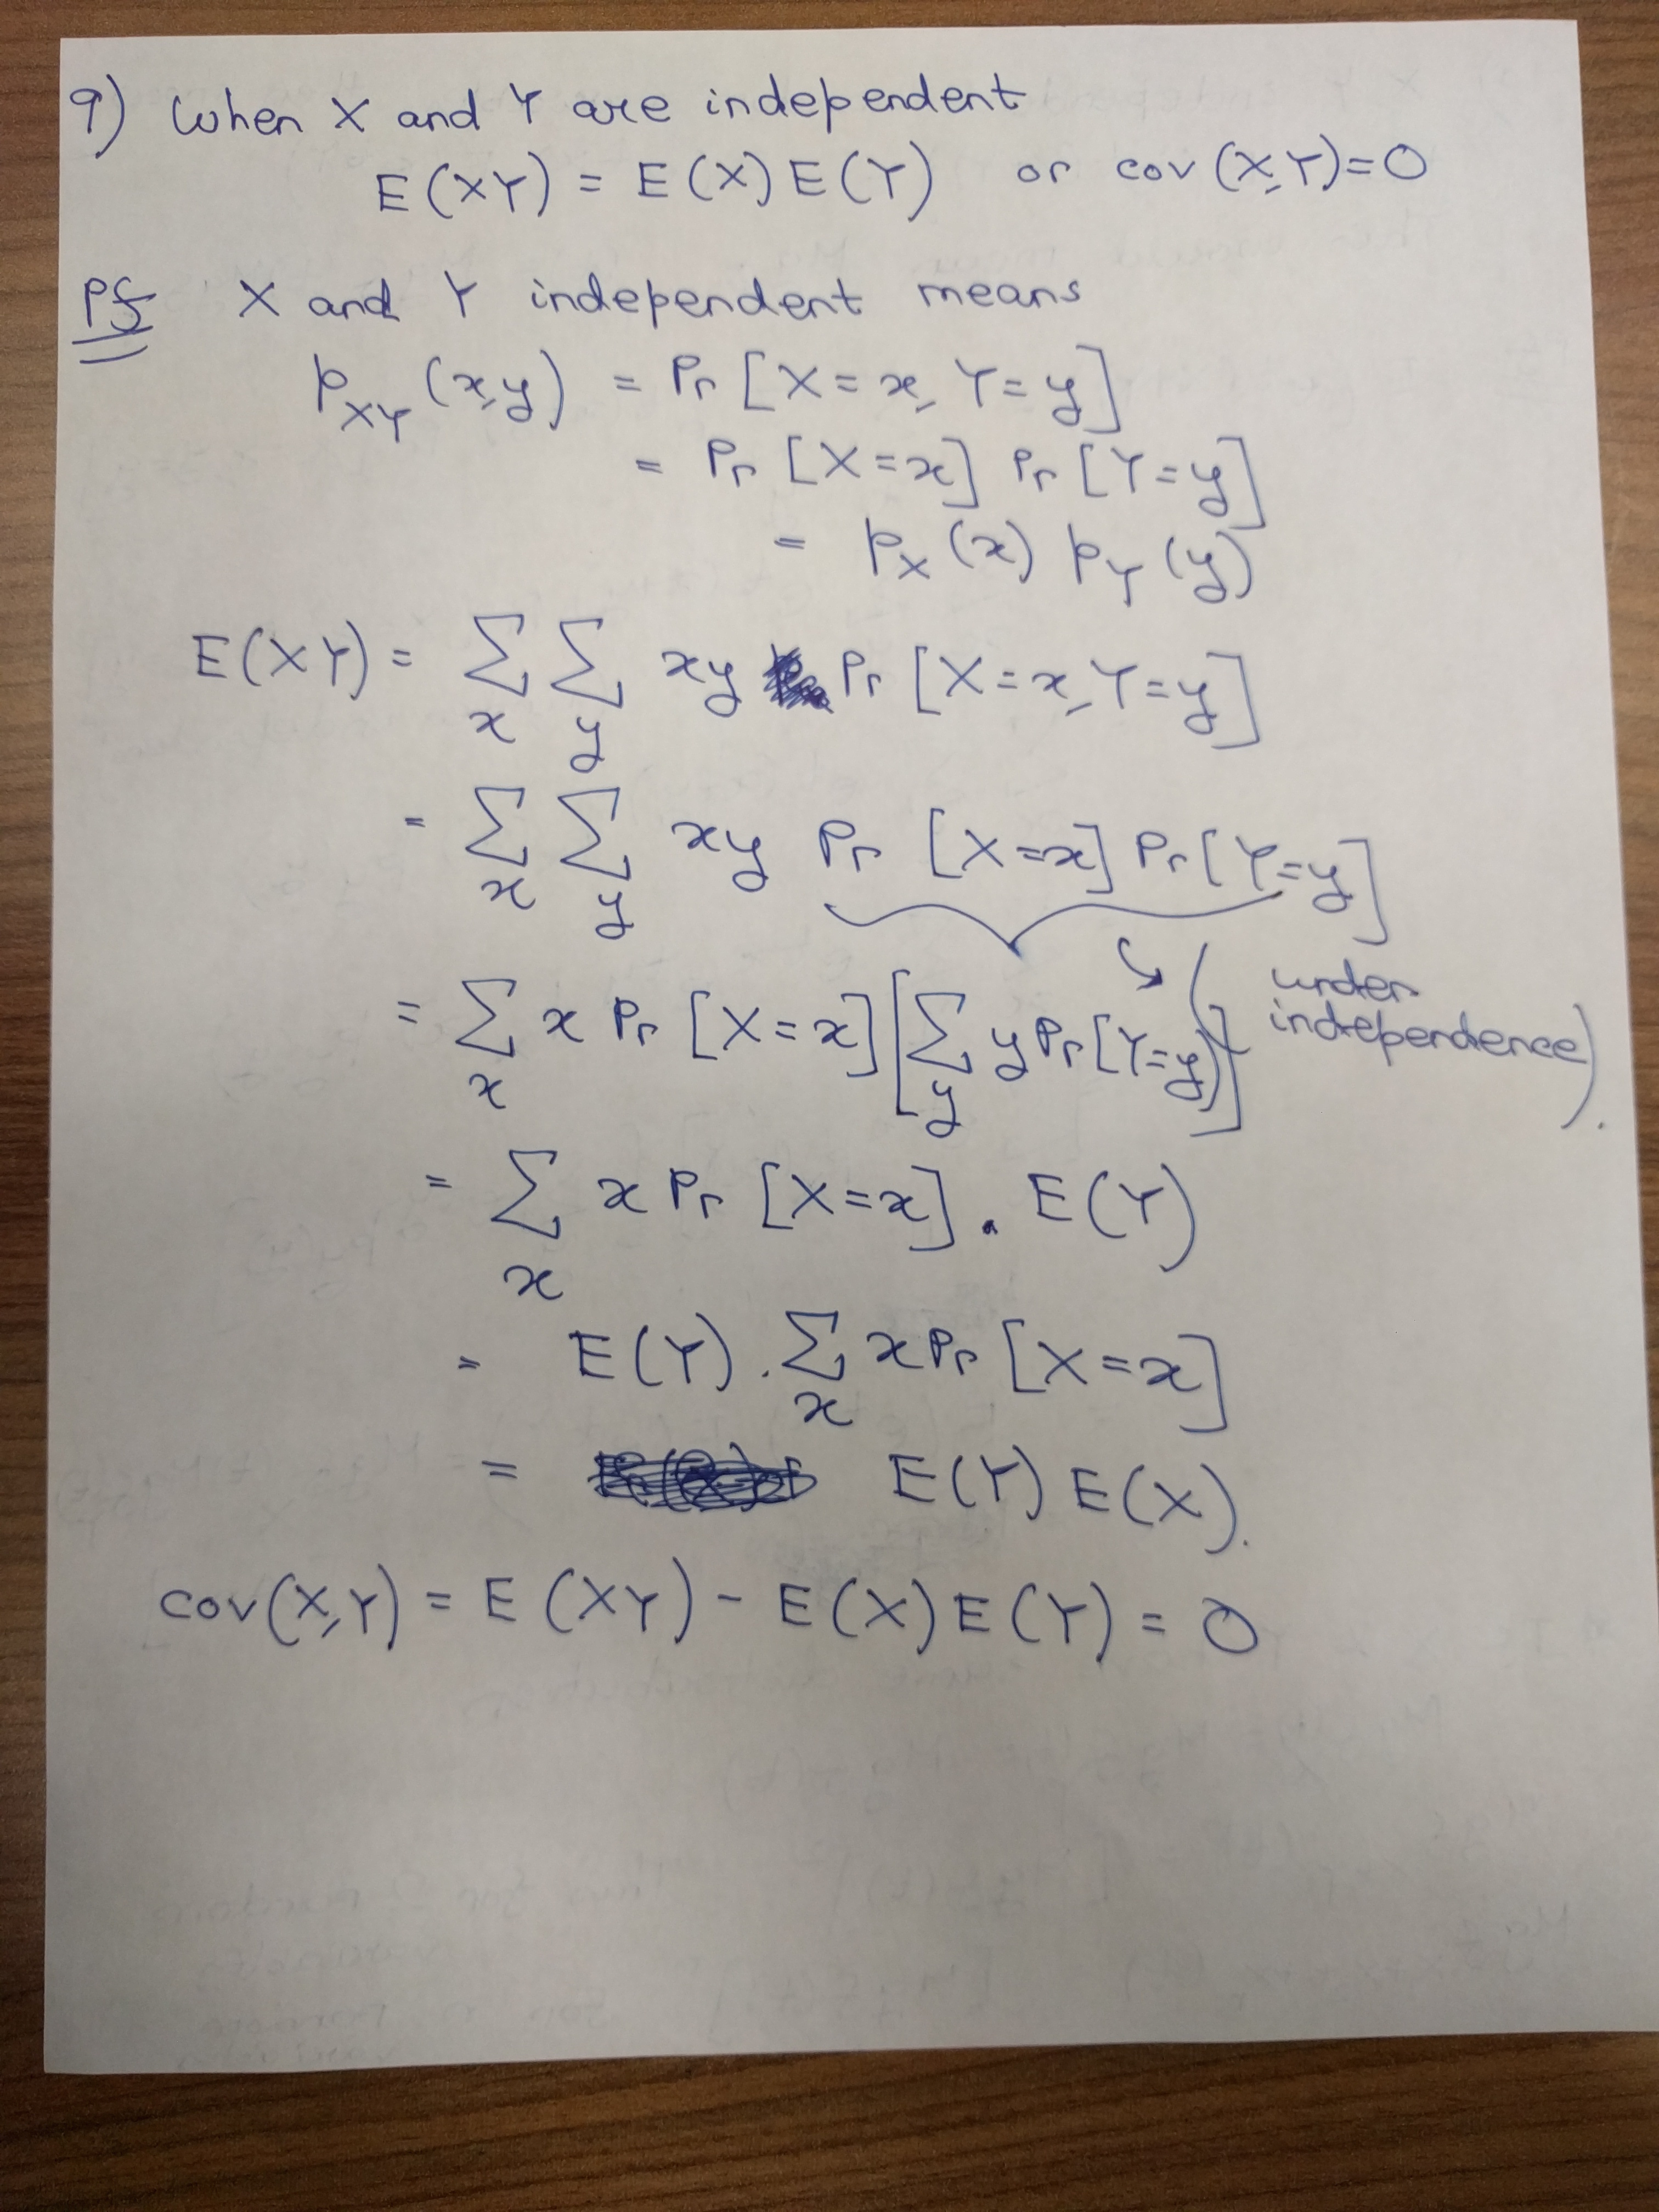 9) When X and Y are independent
E(XY) = E(X) E(Y) or cov(X,Y)=0
Pf X and Y independent means
p_XY (x,y) = Pr [X=x, Y=y]
= Pr [X=x] Pr [Y=y]
= p_X (x) p_Y (y)
E(XY) = ∑_x ∑_y xy Pr [X=x, Y=y]
= ∑_x ∑_y xy Pr [X=x] Pr [Y=y]
↘ (under independence).
= ∑_x x Pr [X=x] [∑_y y Pr [Y=y]]
= ∑_x x Pr [X=x] . E(Y)
= E(Y) . ∑_x x Pr [X=x]
= E(Y) E(X).
cov(X,Y) = E(XY) - E(X) E(Y) = 0